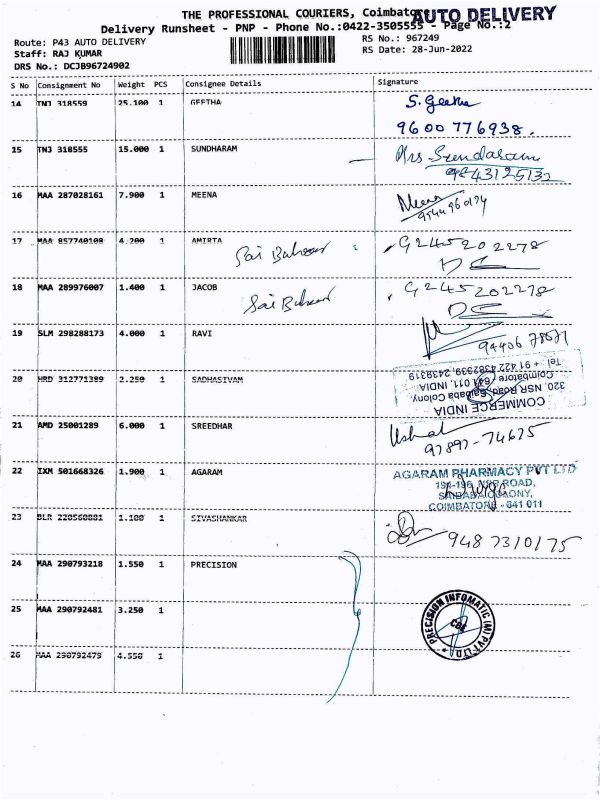 THE PROFESSIONAL COURIERS, Coimbatore
AUTO DELIVERY
Delivery Runsheet - PNP - Phone No.:0422-3505555 - Page No.:2
Route: P43 AUTO DELIVERY RS No.: 967249
Staff: RAJ KUMAR RS Date: 28-Jun-2022
DRS No.: DCJB96724902
S No Consignment No Weight PCS Consignee Details Signature
14 TNJ 318559 25.100 1 GEETHA S. Geetha
9600 776938.
15 TNJ 318555 15.000 1 SUNDHARAM Mrs Sundaram
9843125132
16 MAA 287028161 7.900 1 MEENA Meena
17 MAA 857740108 4.200 1 AMIRTA Sai Baheer G245202278
18 MAA 289976007 1.400 1 JACOB G245202278
19 SLM 298288173 4.000 1 RAVI
20 HRD 312771389 2.250 1 SADHASIVAM
COMMERCE INDIA
320, NSR Road, Saibaba Colony
Coimbatore 641 011. INDIA
Tel : + 91 422 4382939, 2439219
21 AMD 25001289 6.000 1 SREEDHAR Ushat
97897-74675
22 IXM 501668326 1.900 1 AGARAM AGARAM PHARMACY PVT LTD
194-196, NSR ROAD,
SAIBABA COLONY,
COIMBATORE - 641 011
23 BLR 220560881 1.100 1 SIVASHANKAR 9487310175
24 MAA 290793218 1.550 1 PRECISION
PRECISION INFOMATIC (M) PVT LTD
CBE
25 MAA 290792481 3.250 1
26 MAA 290792479 4.550 1